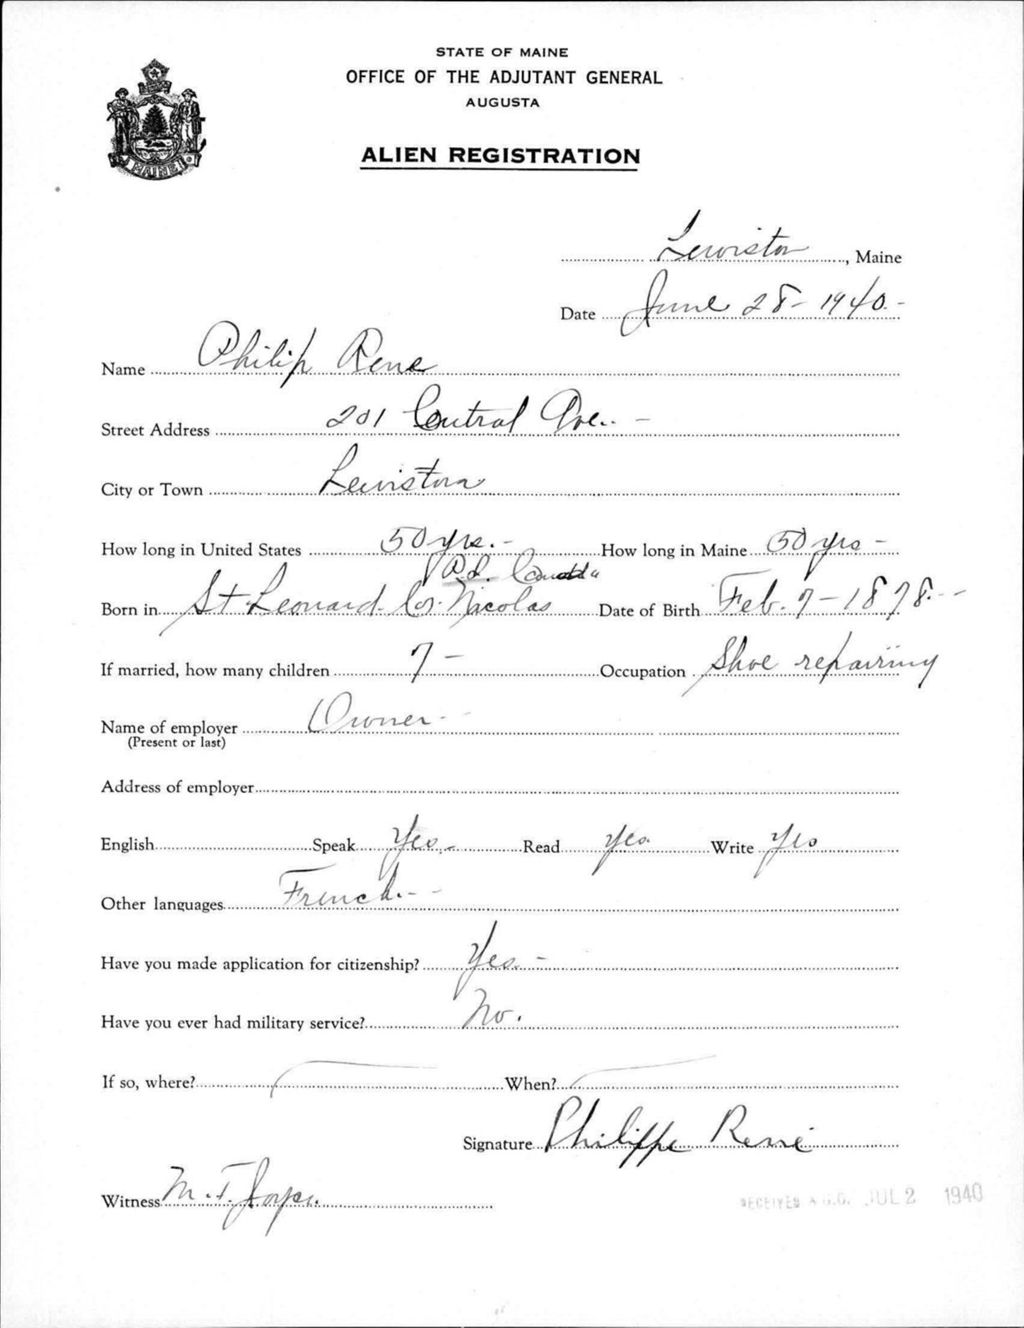 STATE OF MAINE
OFFICE OF THE ADJUTANT GENERAL
AUGUSTA
ALIEN REGISTRATION
MAINE
Lewiston, Maine
Date June 28 - 1940. -
Name Philip Rene
Street Address 201 Central Ave. -
City or Town Lewiston
How long in United States 50 yrs. - How long in Maine 50 yrs -
P.Q. Canada
Born in St. Leonard Co. Nicolas Date of Birth Feb. 7 - 1878. -
If married, how many children 7 - Occupation Shoe repairing
Name of employer Owner -
(Present or last)
Address of employer
English Speak Yes. - Read Yes Write Yes
Other languages French. - -
Have you made application for citizenship? Yes. -
Have you ever had military service? No.
If so, where? When?
Signature Philippe René
Witness M. T.
RECEIVED A.G.O. JUL 2 1940